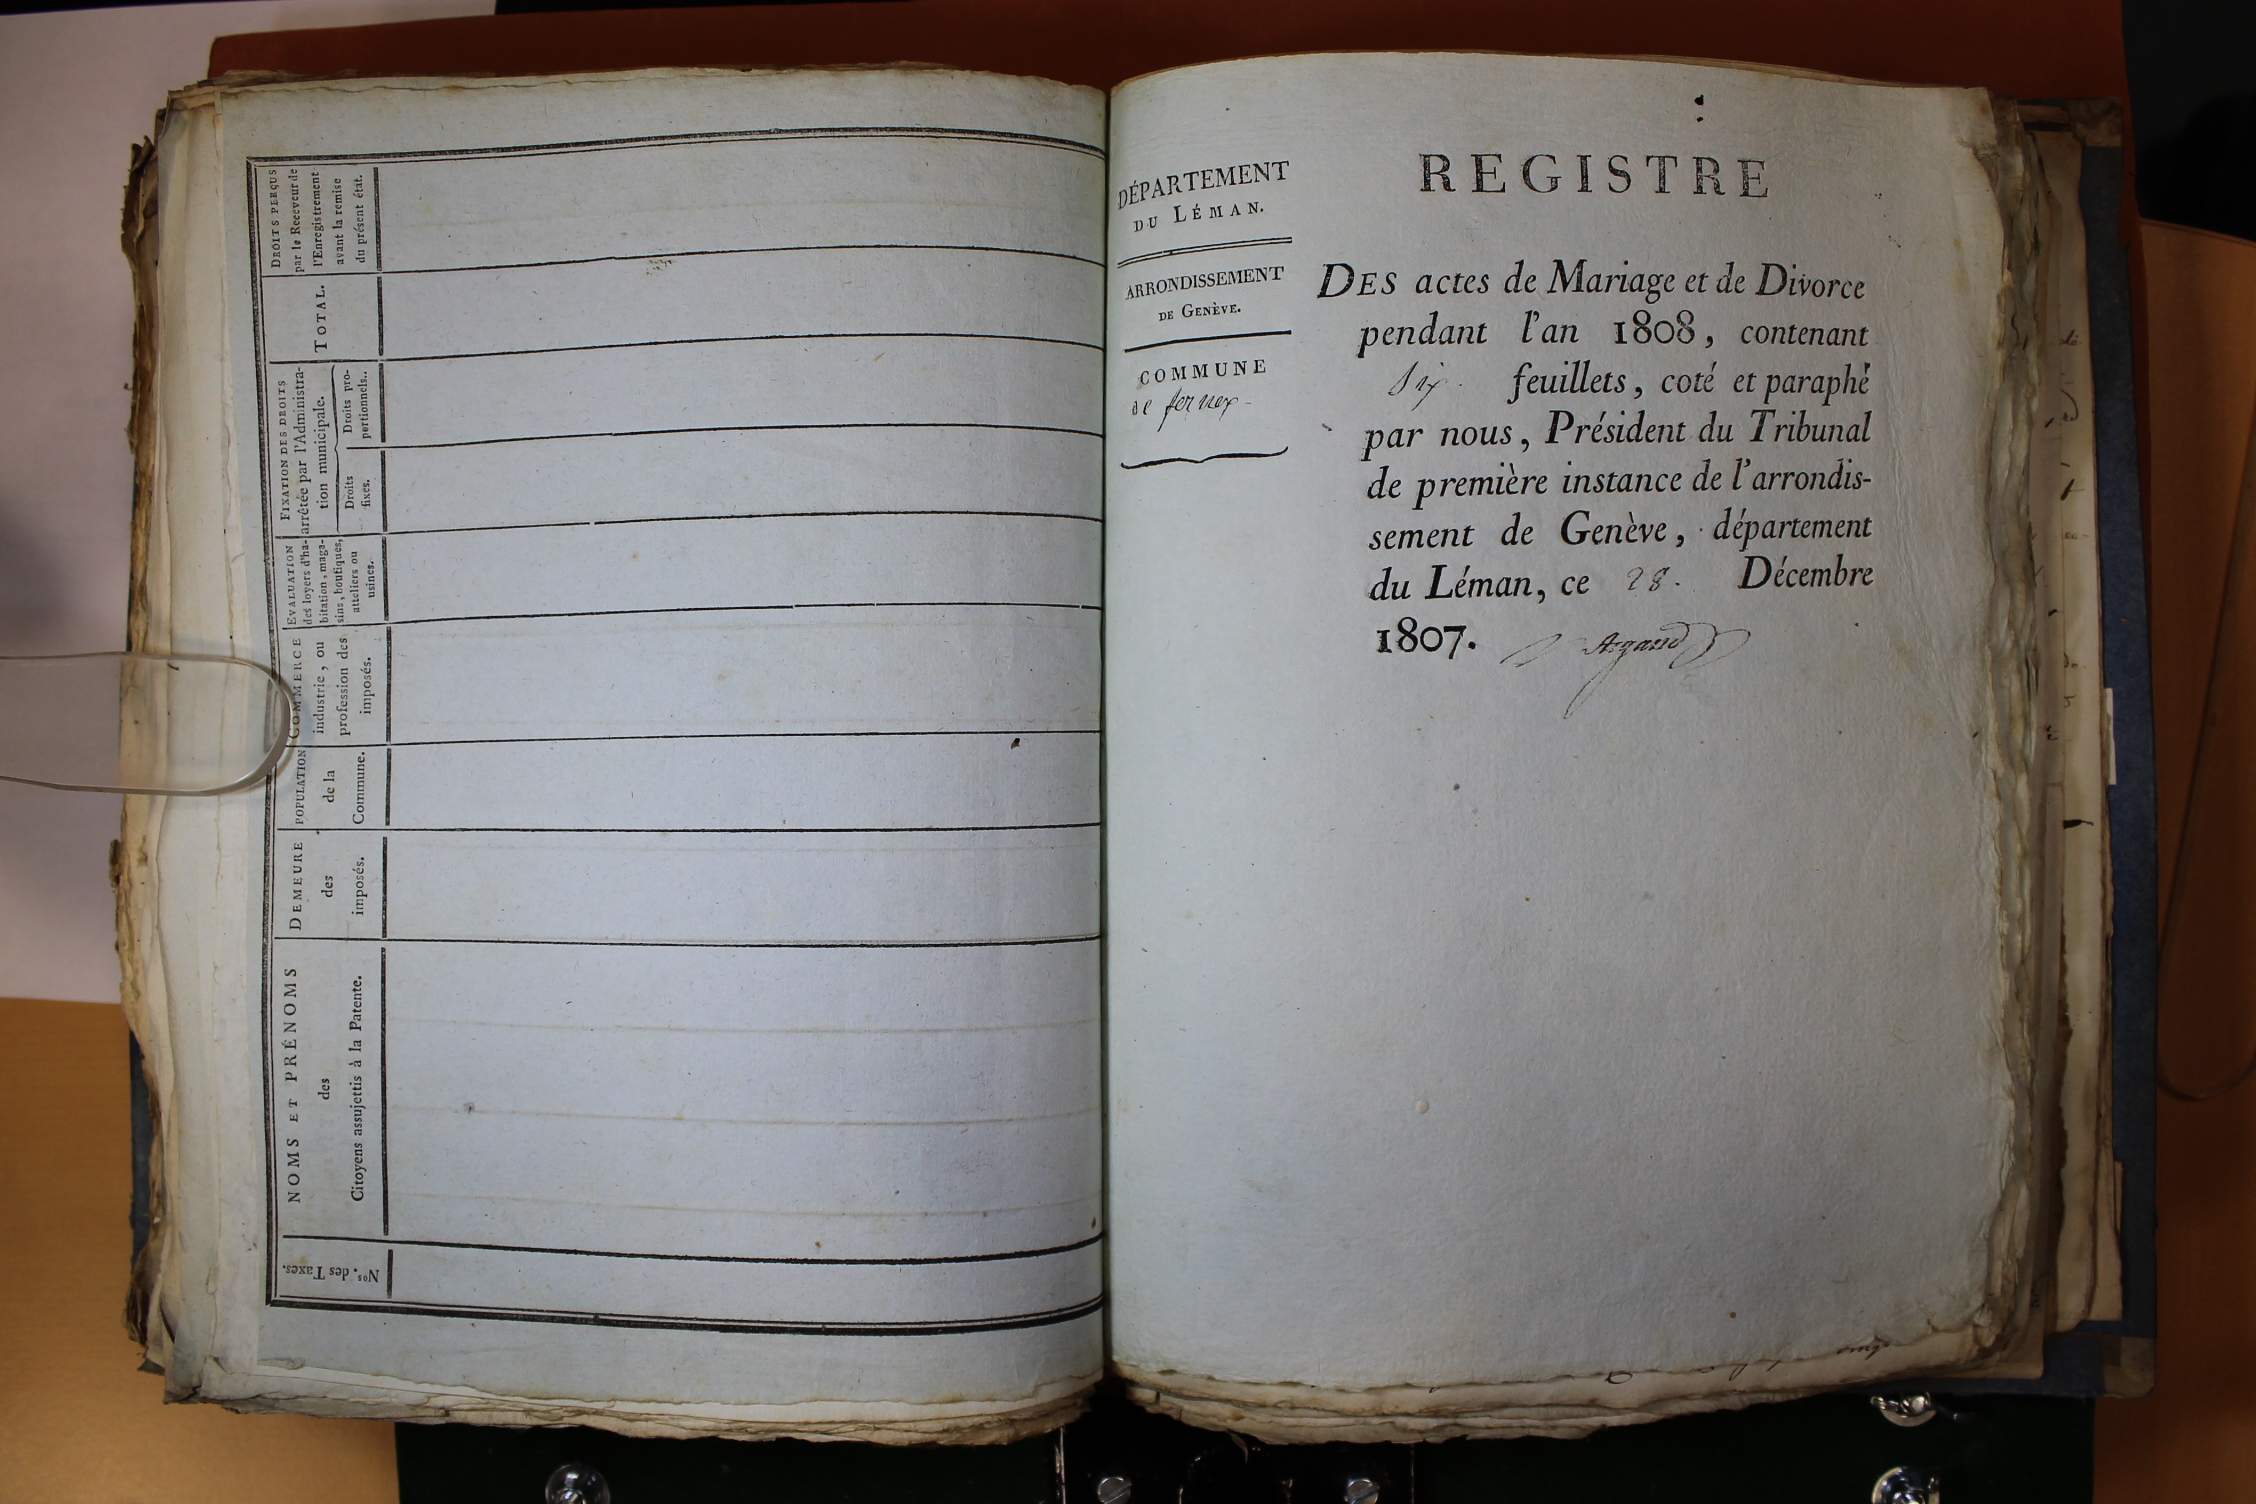 DROITS PERÇUS
par le Receveur de
l'Enregistrement
avant la remise
du présent état.
TOTAL.
FIXATION DES DROITS
arrêtée par l'Administra-
tion municipale.
Droits pro-
portionnels..
Droits
fixes.
EVALUATION
des loyers d'ha-
bitation, maga-
sins, boutiques,
atteliers ou
usines.
COMMERCE
industrie, ou
profession des
imposés.
POPULATION
de la
Commune.
DEMEURE
des
imposés.
NOMS ET PRÉNOMS
des
Citoyens assujettis à la Patente.
Nos. des Taxes.
DÉPARTEMENT
DU LÉMAN.
ARRONDISSEMENT
DE GENÈVE.
COMMUNE
de fernex
REGISTRE
DES actes de Mariage et de Divorce
pendant l'an 1808, contenant
Six. feuillets, coté et paraphé
par nous, Président du Tribunal
de première instance de l'arrondis-
sement de Genève, département
du Léman, ce 28. Décembre
1807. Argand